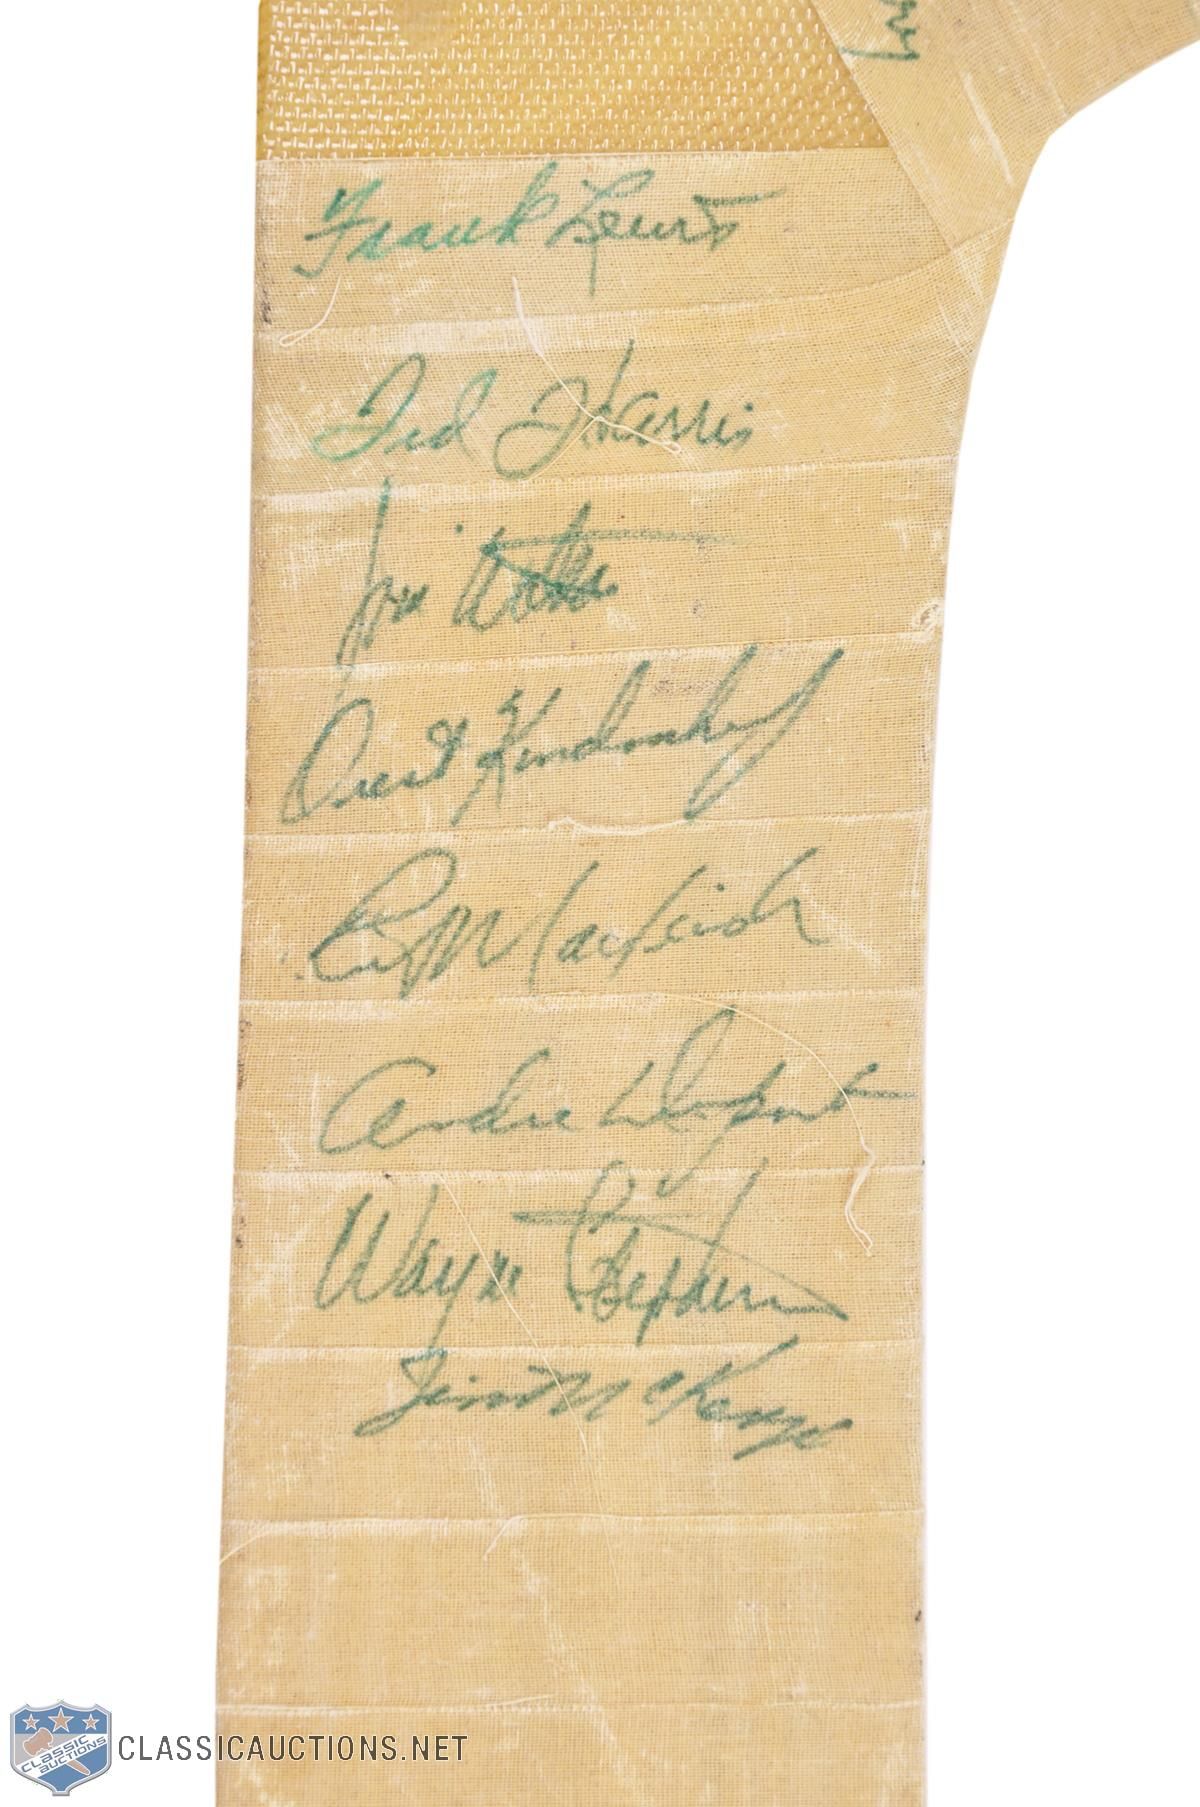 Frank Lewis
Ted Harris
Joe Watson
Orest Kindrachuk
R MacLeish
Andre Dupont
Wayne Stephenson
Jim McKenzie
CLASSIC
AUCTIONS
CLASSICAUCTIONS.NET